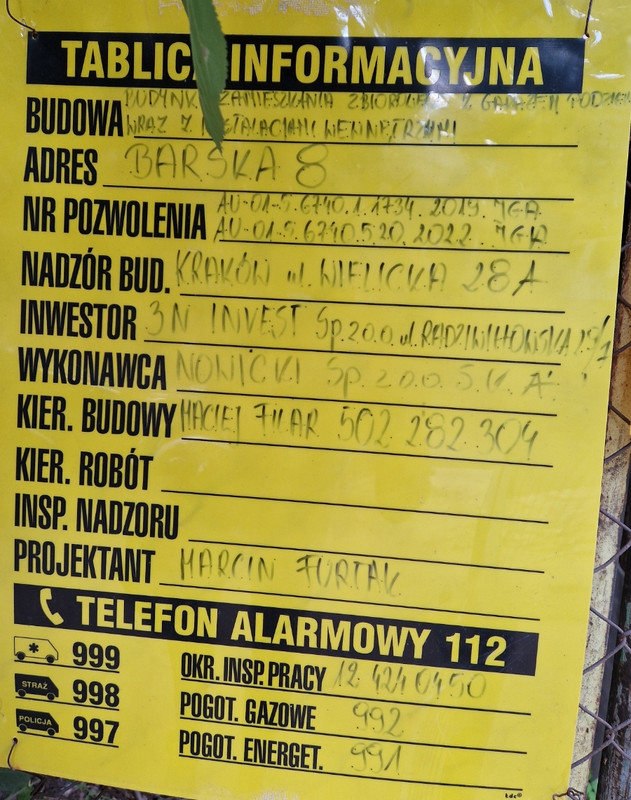 TABLICA INFORMACYJNA
BUDOWA BUDYNK ZAMIESZKANIA ZBIOROWEGO Z GARAŻEM PODZIEM
WRAZ Z INSTALACJAMI WEWNĘTRZNYMI
ADRES BARSKA 8
NR POZWOLENIA AU-01-5.6740.1.1734.2019.JGA
AU-01-5.6740.5.20.2022.JGA
NADZÓR BUD. KRAKÓW ul. WIELICKA 28A
INWESTOR 3N INVEST Sp. z o.o. ul. RADZIWIŁŁOWSKA
WYKONAWCA NOWICKI Sp. z o.o. S.K.A.
KIER. BUDOWY MACIEJ FILAR 502 282 304
KIER. ROBÓT
INSP. NADZORU
PROJEKTANT MARCIN FURTAK
TELEFON ALARMOWY 112
999
STRAŻ 998
POLICJA 997
OKR. INSP. PRACY 12 424 04 50
POGOT. GAZOWE 992
POGOT. ENERGET. 991
tdc®